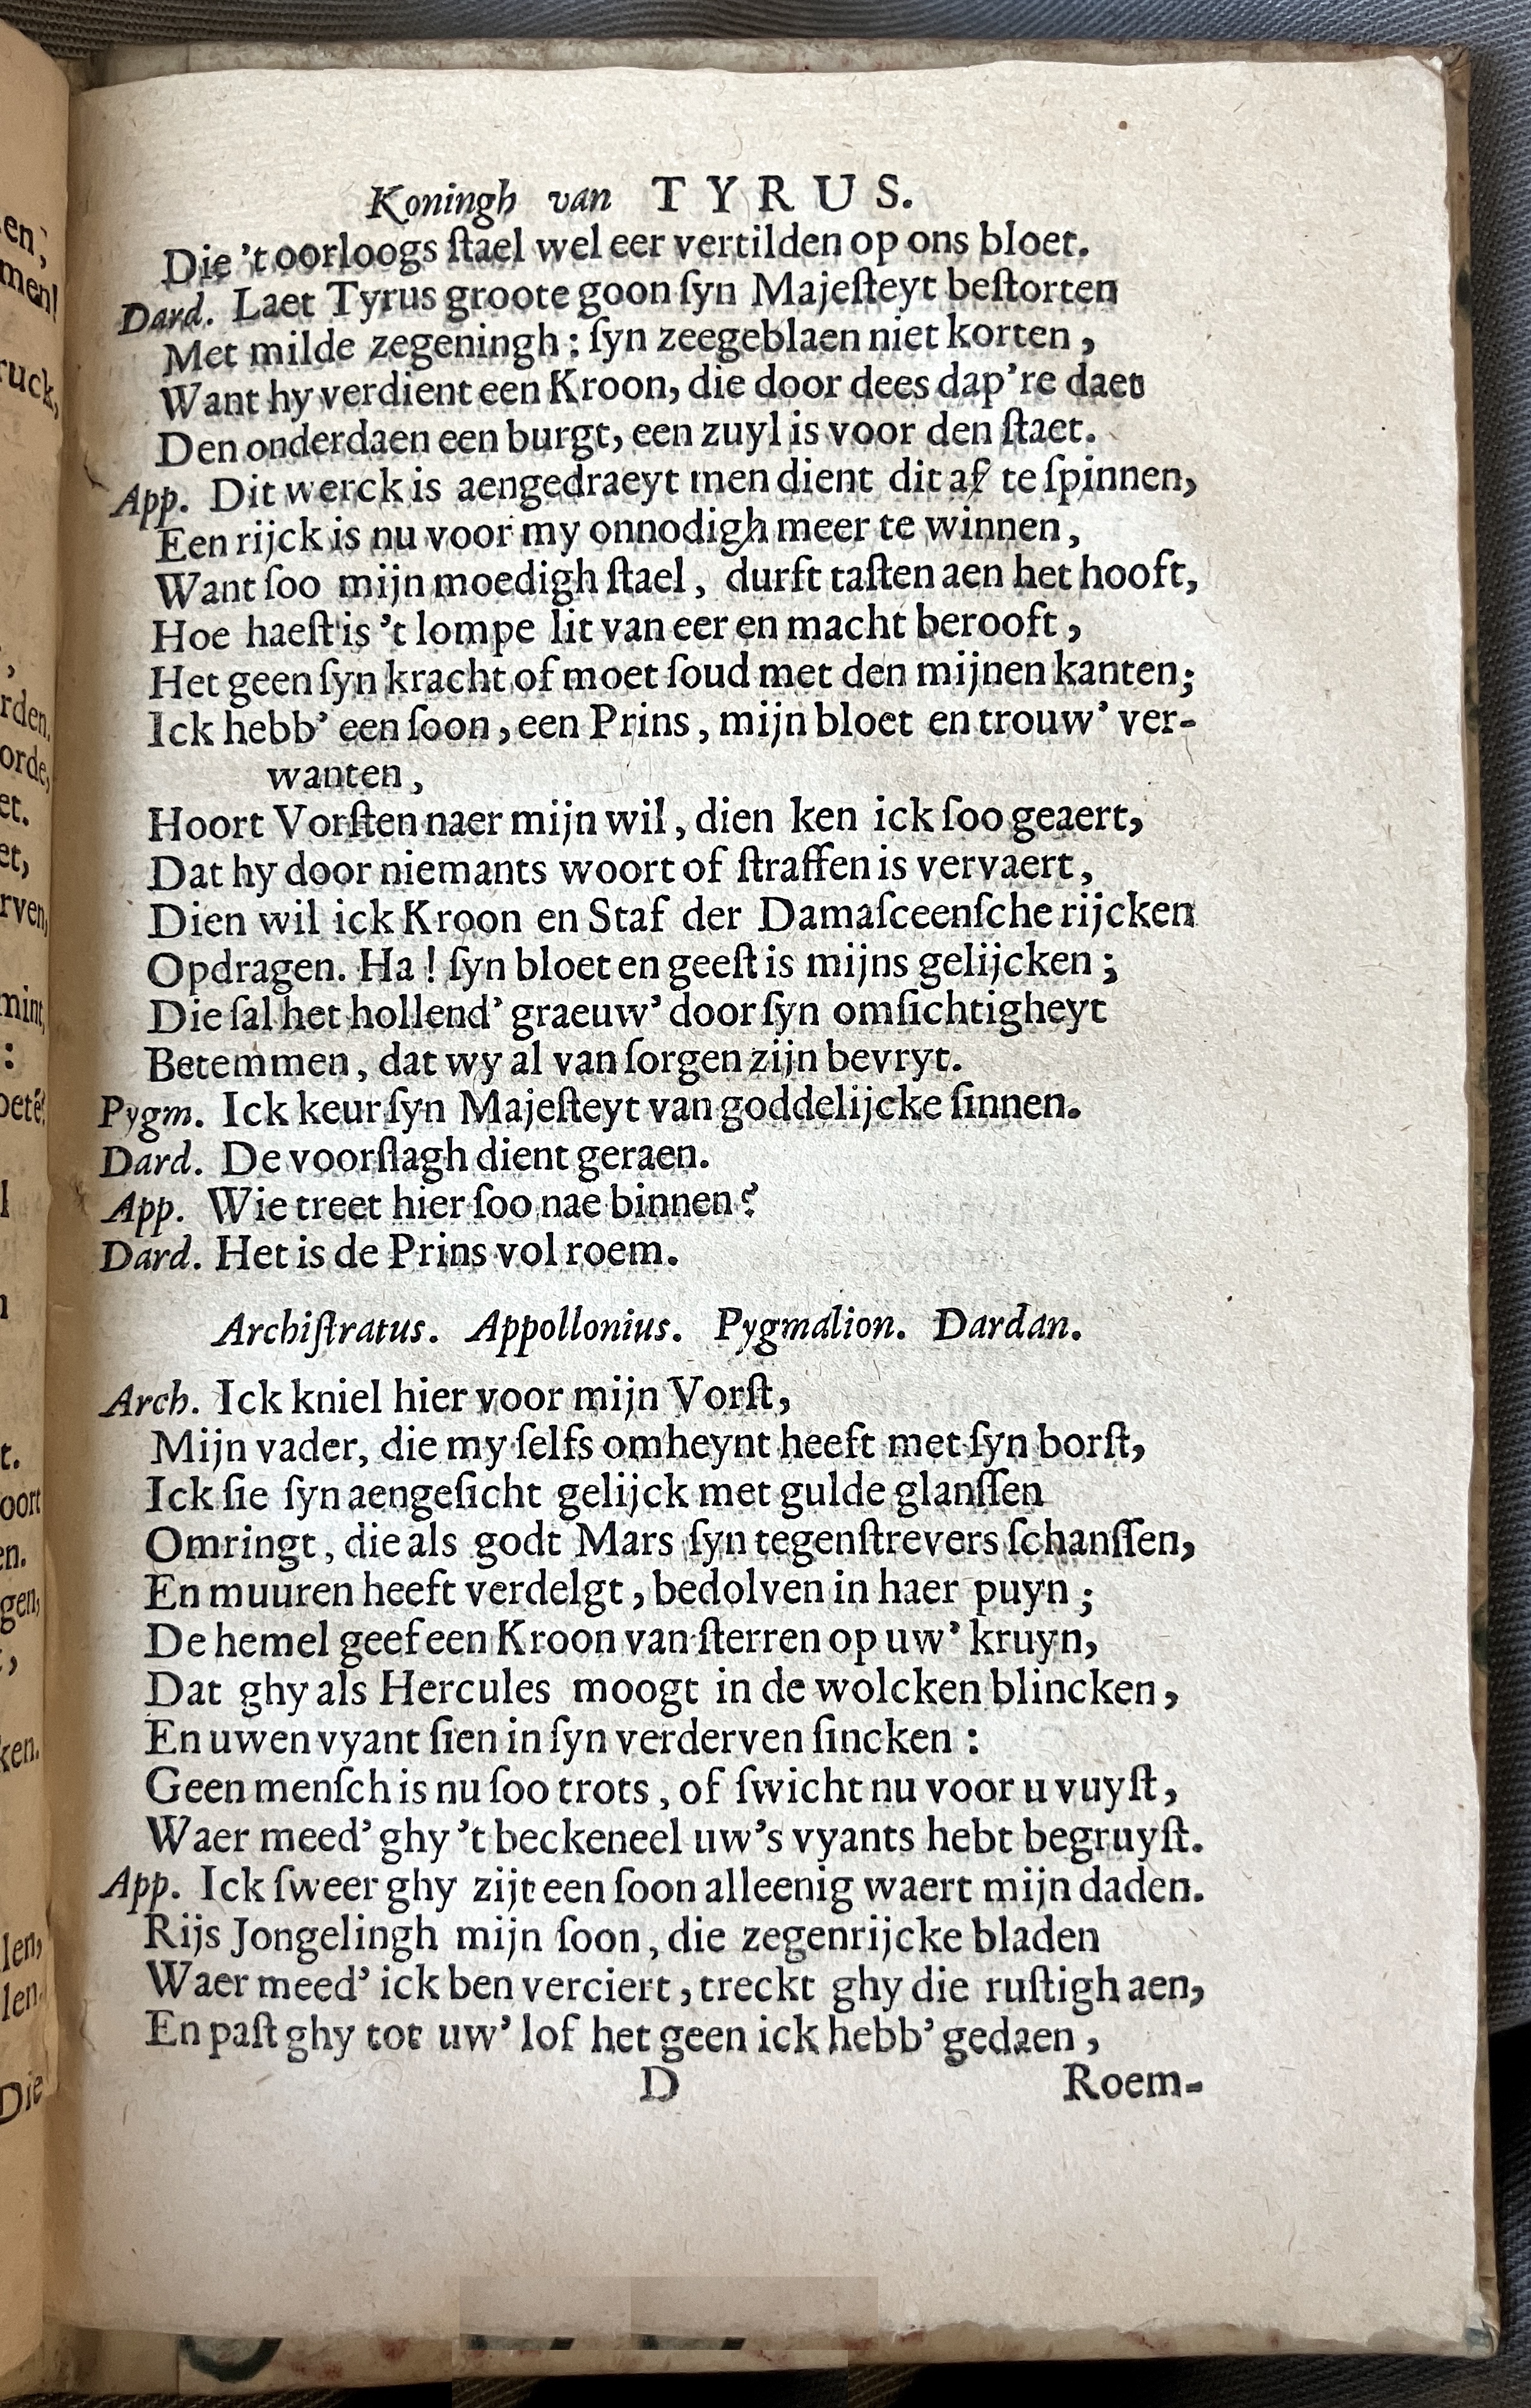 Koningh van TYRUS.
Die 't oorloogs ſtael wel eer vertilden op ons bloet.
Dard. Laet Tyrus groote goon ſyn Majeſteyt beſtorten
Met milde zegeningh : ſyn zeegeblaen niet korten ,
Want hy verdient een Kroon, die door dees dap're daet
Den onderdaen een burgt, een zuyl is voor den ſtaet.
App. Dit werck is aengedraeyt men dient dit af te ſpinnen,
Een rijck is nu voor my onnodigh meer te winnen ,
Want ſoo mijn moedigh ſtael , durft taſten aen het hooft,
Hoe haeſt is 't lompe lit van eer en macht berooft ,
Het geen ſyn kracht of moet ſoud met den mijnen kanten;
Ick hebb' een ſoon , een Prins , mijn bloet en trouw' ver-
wanten ,
Hoort Vorſten naer mijn wil , dien ken ick ſoo geaert,
Dat hy door niemants woort of ſtraffen is vervaert ,
Dien wil ick Kroon en Staf der Damaſceenſche rijcken
Opdragen. Ha ! ſyn bloet en geeſt is mijns gelijcken ;
Die ſal het hollend' graeuw' door ſyn omſichtigheyt
Betemmen , dat wy al van ſorgen zijn bevryt.
Pygm. Ick keur ſyn Majeſteyt van goddelijcke ſinnen.
Dard. De voorſlagh dient geraen.
App. Wie treet hier ſoo nae binnen?
Dard. Het is de Prins vol roem.
Archiſtratus. Appollonius. Pygmalion. Dardan.
Arch. Ick kniel hier voor mijn Vorſt,
Mijn vader, die my ſelfs omheynt heeft met ſyn borſt,
Ick ſie ſyn aengeſicht gelijck met gulde glanſſen
Omringt , die als godt Mars ſyn tegenſtrevers ſchanſſen,
En muuren heeft verdelgt , bedolven in haer puyn ;
De hemel geef een Kroon van ſterren op uw' kruyn,
Dat ghy als Hercules moogt in de wolcken blincken ,
En uwen vyant ſien in ſyn verderven ſincken :
Geen menſch is nu ſoo trots , of ſwicht nu voor u vuyſt ,
Waer meed' ghy 't beckeneel uw's vyants hebt begruyſt.
App. Ick ſweer ghy zijt een ſoon alleenig waert mijn daden.
Rijs Jongelingh mijn ſoon , die zegenrijcke bladen
Waer meed' ick ben verciert , treckt ghy die ruſtigh aen,
En paſt ghy tot uw' lof het geen ick hebb' gedaen ,
D Roem-